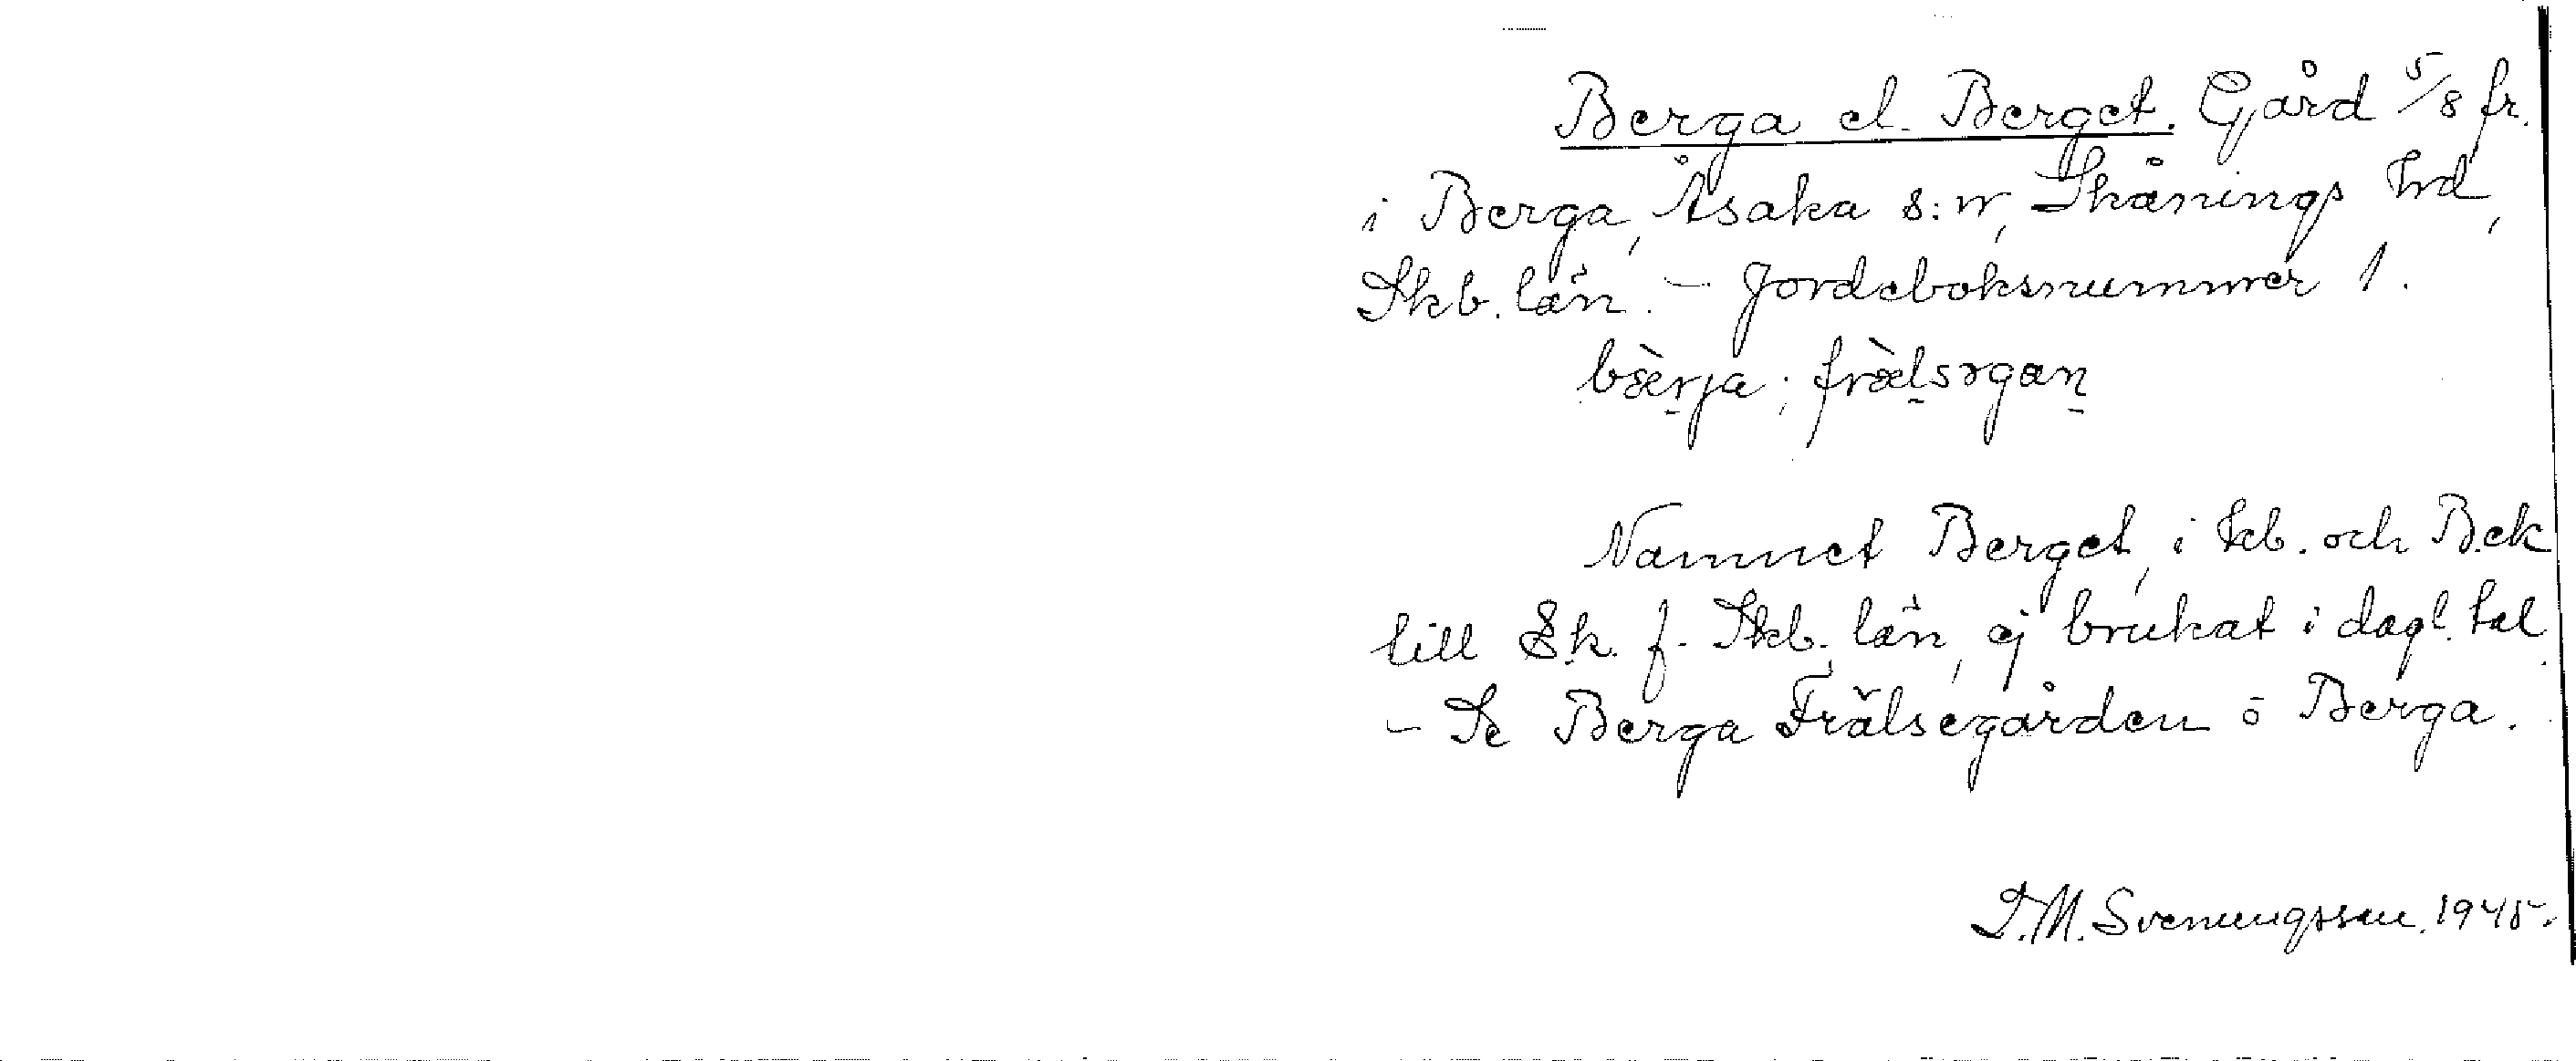 Berga el. Berget. Gård 5/8 fr.
i Berga, Åsaka s:n, Skånings hd,
Skb. län. – Jordeboksnummer 1.
bæ̀rja; fræ̀lsəgan
Namnet Berget, i Jeb. och Bek
till Ek. f. Skb. län, ej brukat i dagl. tal.
– Se Berga Frälsegården o Berga.
D.M. Svenungsson. 1945.